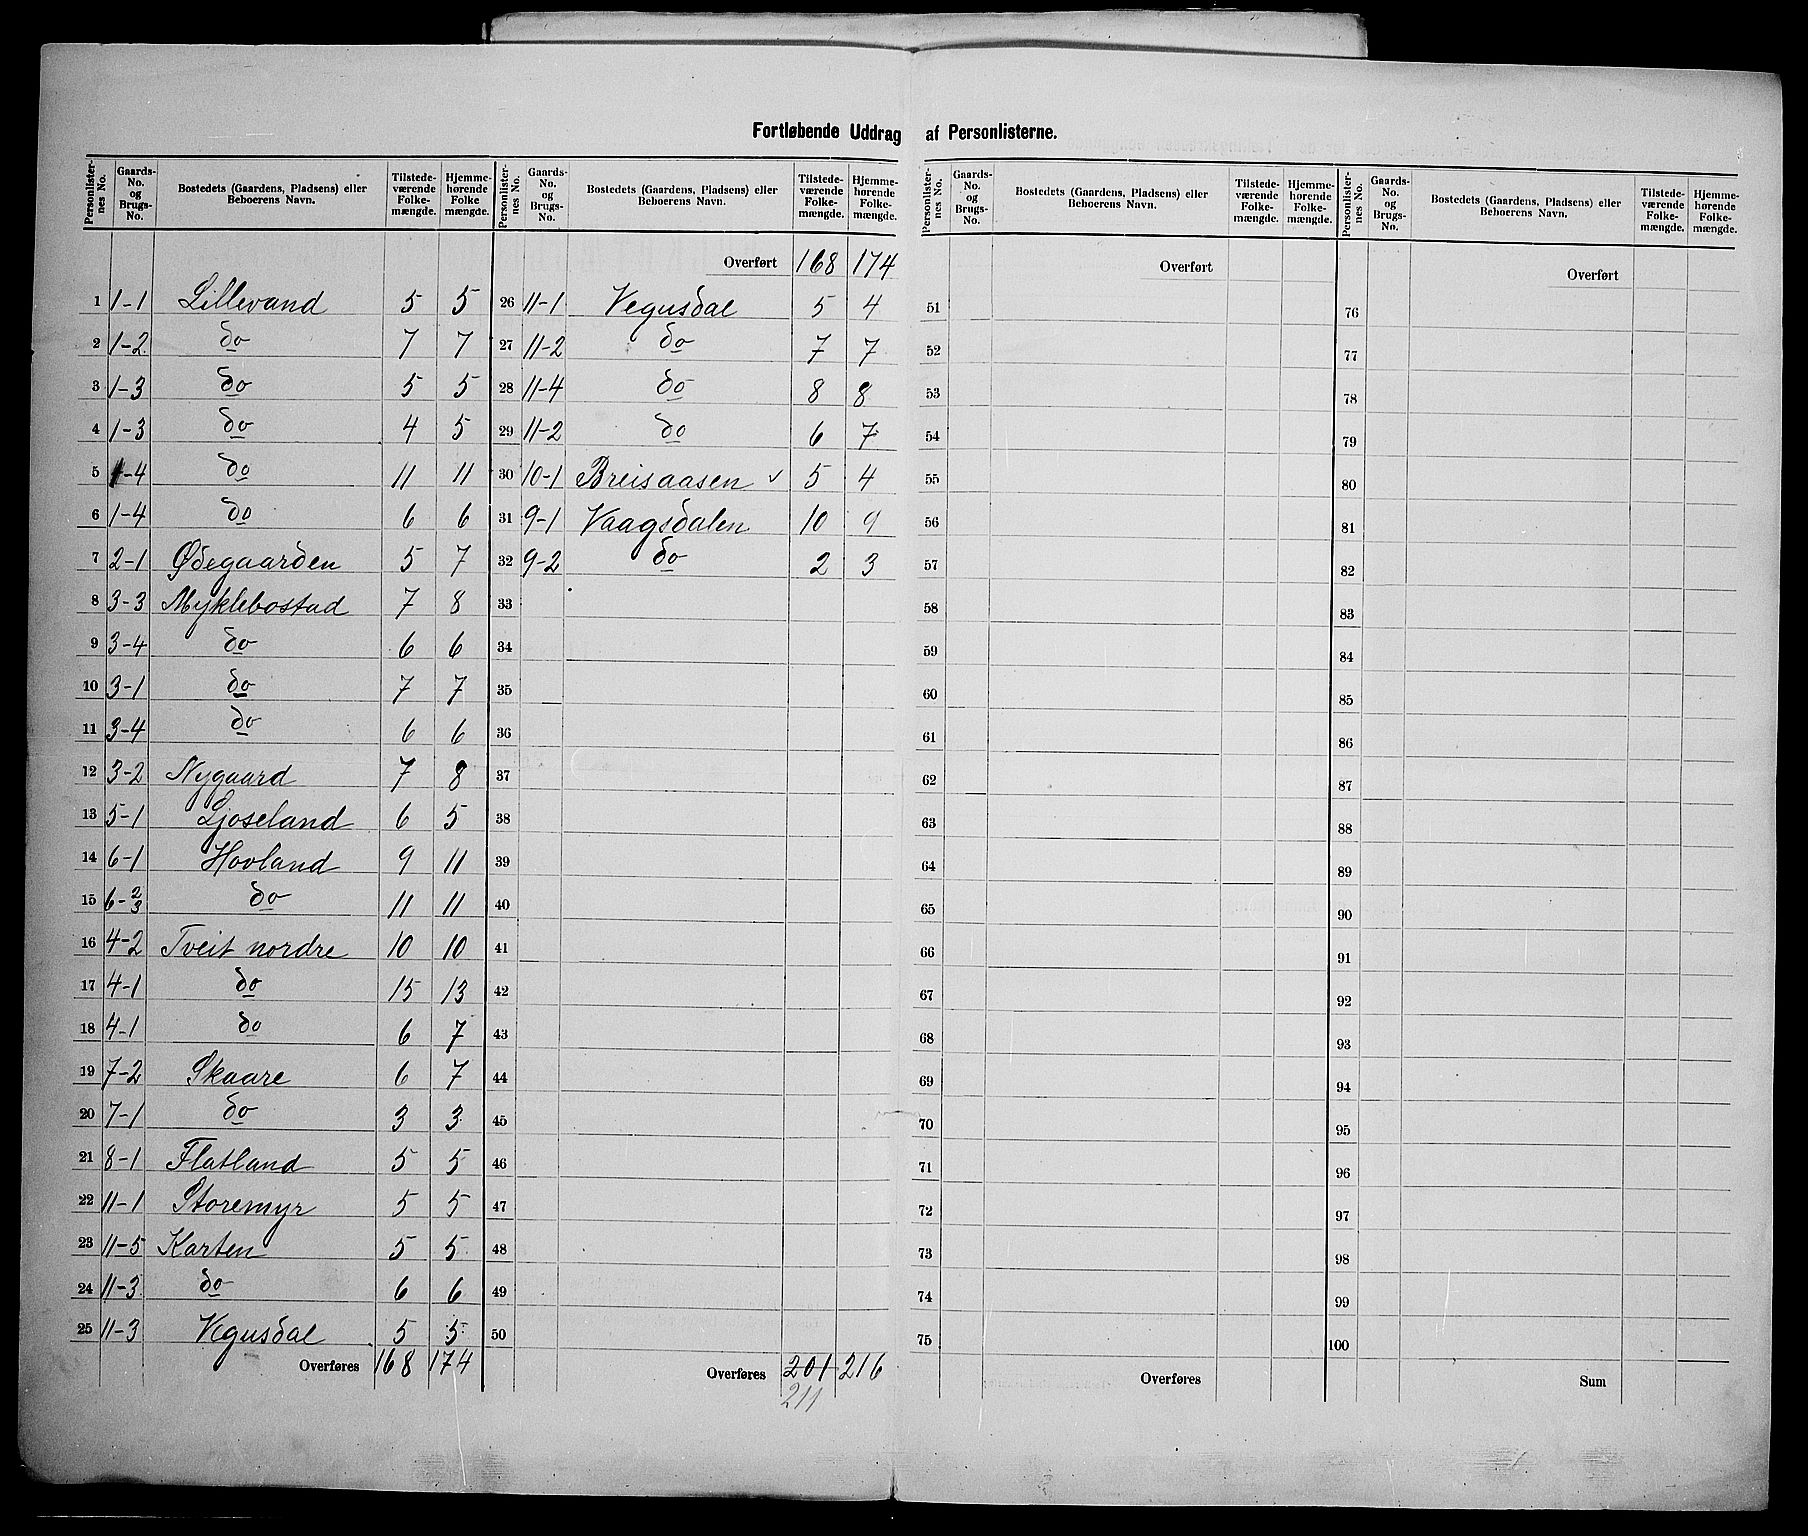 Fortløbende Uddrag af Personlisterne.
Personlisternes No. Gaards-No. og Brugs-No. Bostedets (Gaardens, Pladsens) eller Beboerens Navn. Tilstedeværende Folkemængde. Hjemmehørende Folkemængde.
1 1-1 Lillevand 5 5
2 1-2 do 7 7
3 1-3 do 5 5
4 1-3 do 4 5
5 1-4 do 11 11
6 1-4 do 6 6
7 2-1 Ødegaarden 5 7
8 3-3 Myklebostad 7 8
9 3-4 do 6 6
10 3-1 do 7 7
11 3-4 do 6 6
12 3-2 Nygaard 7 8
13 5-1 Ljoseland 6 5
14 6-1 Hovland 9 11
15 6-2/3 do 11 11
16 4-2 Tveit nordre 10 10
17 4-1 do 15 13
18 4-1 do 6 7
19 7-2 Skaare 6 7
20 7-1 do 3 3
21 8-1 Flatland 5 5
22 11-1 Storemyr 5 5
23 11-5 Karten 5 5
24 11-3 do 6 6
25 11-3 Vegusdal 5 5
Overføres 168 174
Personlisternes No. Gaards-No. og Brugs-No. Bostedets (Gaardens, Pladsens) eller Beboerens Navn. Tilstedeværende Folkemængde. Hjemmehørende Folkemængde.
Overført 168 174
26 11-1 Vegusdal 5 4
27 11-2 do 7 7
28 11-4 do 8 8
29 11-2 do 6 7
30 10-1 Breisaasen ✓ 5 4
31 9-1 Vaagsdalen 10 9
32 9-2 do 2 3
33
34
35
36
37
38
39
40
41
42
43
44
45
46
47
48
49
50
Overføres 201 216
211
Personlisternes No. Gaards-No. og Brugs-No. Bostedets (Gaardens, Pladsens) eller Beboerens Navn. Tilstedeværende Folkemængde. Hjemmehørende Folkemængde.
Overført
51
52
53
54
55
56
57
58
59
60
61
62
63
64
65
66
67
68
69
70
71
72
73
74
75
Overføres
Personlisternes No. Gaards-No. og Brugs-No. Bostedets (Gaardens, Pladsens) eller Beboerens Navn. Tilstedeværende Folkemængde. Hjemmehørende Folkemængde.
Overført
76
77
78
79
80
81
82
83
84
85
86
87
88
89
90
91
92
93
94
95
96
97
98
99
100
Sum